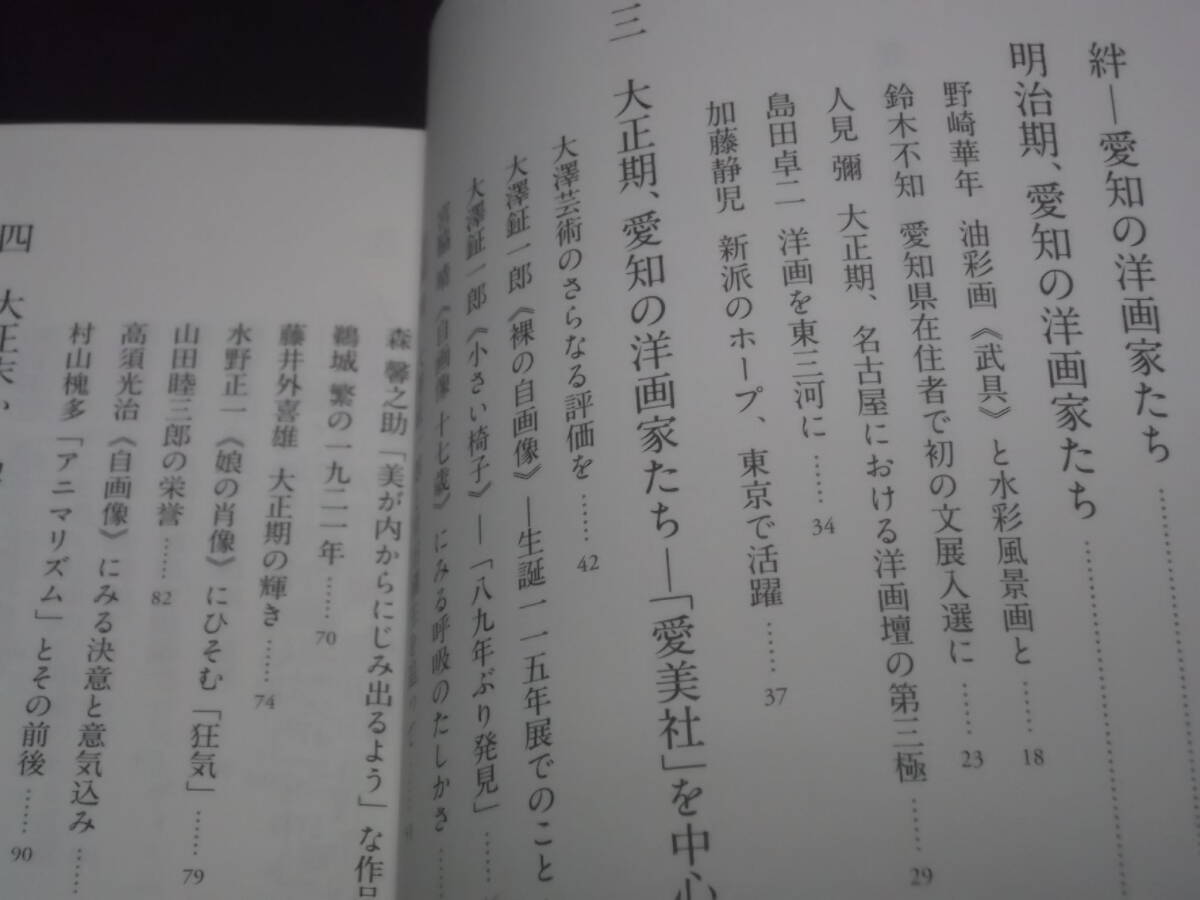 絆―愛知の洋画家たち…………
明治期、愛知の洋画家たち…………
野崎華年 油彩画《武具》と水彩風景画と……18
鈴木不知 愛知県在住者で初の文展入選に……23
人見 彌 大正期、名古屋における洋画壇の第三極……29
島田卓二 洋画を東三河に……34
加藤静児 新派のホープ、東京で活躍……37
三 大正期、愛知の洋画家たち―「愛美社」を中心
大澤芸術のさらなる評価を……42
大澤鉦一郎《裸の自画像》―生誕一一五年展でのこと
大澤鉦一郎《小さい椅子》―「八九年ぶり発見」……
《自画像 十七歳》にみる呼吸のたしかさ……
森 馨之助「美が内からにじみ出るよう」な作品
鵜城 繁の一九二一年……70
藤井外喜雄 大正期の輝き……74
水野正一《娘の肖像》にひそむ「狂気」……79
山田睦三郎の栄誉……82
高須光治《自画像》にみる決意と意気込み……
村山槐多「アニマリズム」とその前後……90
四 大正末か